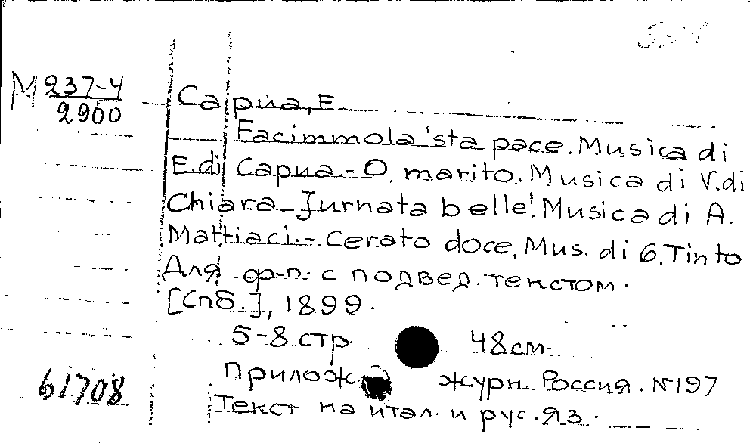 М 237-4
2900
Capua, E.
Facimmola 'sta pace. Musica di
E. di Capua - O, marito. Musica di V. di
Chiara - Jurnata belle! Musica di A.
Mattiaci. - Cerato doce, Mus. di G. Tinto
Для ф-п. с подвед. текстом.
[Спб.], 1899.
5-8 стр 48см
Прилож журн. Россия. №197
Текст на итал. и рус. яз.
61708